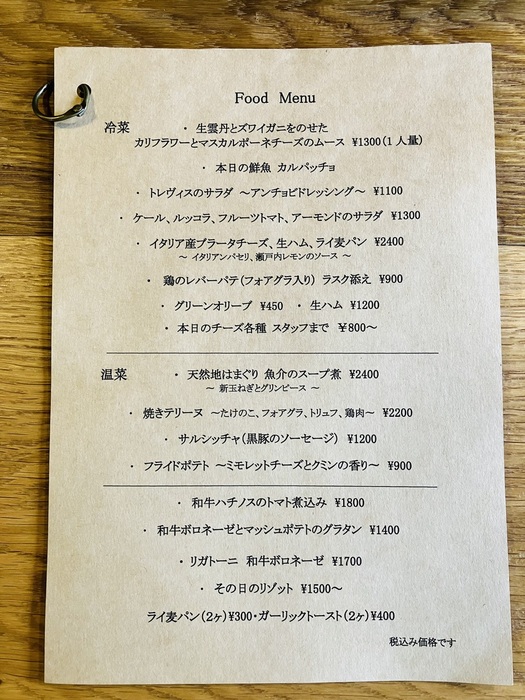 Food Menu
冷菜 ・ 生雲丹とズワイガニをのせた
カリフラワーとマスカルポーネチーズのムース ¥1300(1人量)
・ 本日の鮮魚 カルパッチョ
・ トレヴィスのサラダ ～アンチョビドレッシング～ ¥1100
・ ケール、ルッコラ、フルーツトマト、アーモンドのサラダ ¥1300
・ イタリア産ブラータチーズ、生ハム、ライ麦パン ¥2400
～ イタリアンパセリ、瀬戸内レモンのソース ～
・ 鶏のレバーパテ(フォアグラ入り) ラスク添え ¥900
・ グリーンオリーブ ¥450 ・ 生ハム ¥1200
・ 本日のチーズ各種 スタッフまで ￥800～
温菜 ・ 天然地はまぐり 魚介のスープ煮 ¥2400
～ 新玉ねぎとグリンピース ～
・ 焼きテリーヌ ～たけのこ、フォアグラ、トリュフ、鶏肉～ ¥2200
・ サルシッチャ(黒豚のソーセージ) ¥1200
・ フライドポテト ～ミモレットチーズとクミンの香り～ ¥900
・ 和牛ハチノスのトマト煮込み ¥1800
・ 和牛ボロネーゼとマッシュポテトのグラタン ¥1400
・ リガトーニ 和牛ボロネーゼ ¥1700
・ その日のリゾット ¥1500～
ライ麦パン(2ヶ)¥300・ガーリックトースト(2ヶ)¥400
税込み価格です